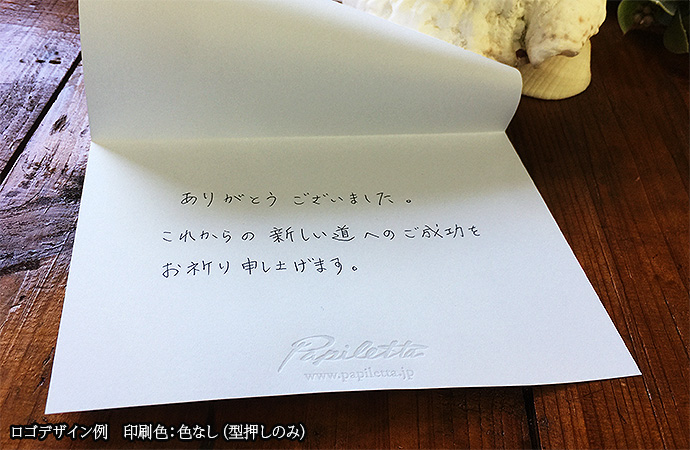 ありがとうございました。
これからの新しい道へのご成功を
お祈り申し上げます。
Papiletta
www.papiletta.jp
ロゴデザイン例　印刷色：色なし（型押しのみ）